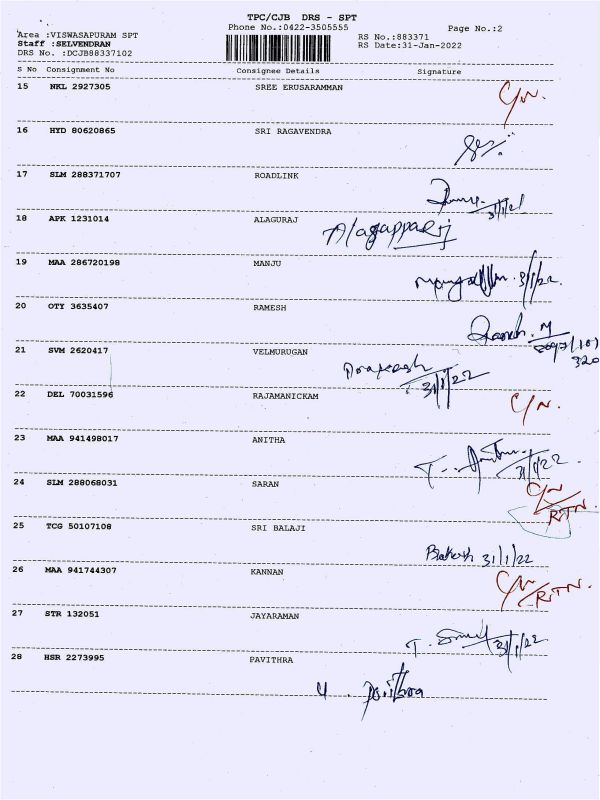 TPC/CJB DRS - SPT
Phone No.:0422-3505555 Page No.:2
Area :VISWASAPURAM SPT
Staff :SELVENDRAN
DRS No. :DCJB88337102
RS No.:883371
RS Date:31-Jan-2022
S No Consignment No Consignee Details Signature
15 NKL 2927305 SREE ERUSARAMMAN C/N.
16 HYD 80620865 SRI RAGAVENDRA
17 SLM 288371707 ROADLINK
18 APK 1231014 ALAGURAJ Alagapparaj
19 MAA 286720198 MANJU 31/1/22.
20 OTY 3635407 RAMESH Ramesh. M
21 SVM 2620417 VELMURUGAN
31/1/22
22 DEL 70031596 RAJAMANICKAM C/N.
23 MAA 941498017 ANITHA T. 31/1/22.
24 SLM 288068031 SARAN C/N
RTN.
25 TCG 50107108 SRI BALAJI 31/1/22
26 MAA 941744307 KANNAN C/N
RTN.
27 STR 132051 JAYARAMAN T. 31/1/22
28 HSR 2273995 PAVITHRA